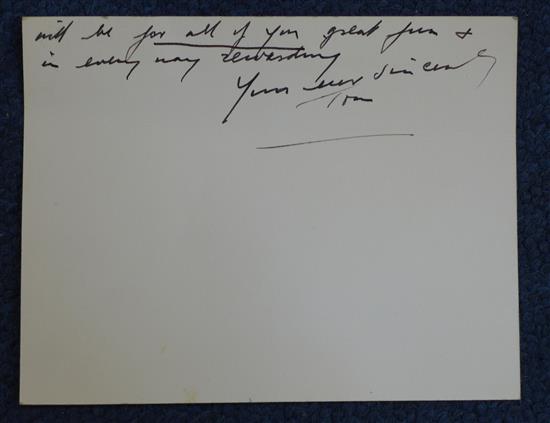 will be for all of you great fun &
in every way rewarding
Yours ever sincerely
Tom